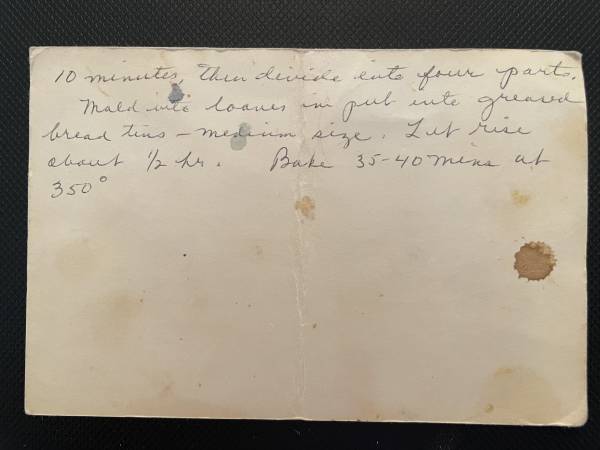 10 minutes, then divide into four parts.
Mold into loaves in put into greased
bread tins - medium size. Let rise
about 1/2 hr. Bake 35-40 mins at
350°